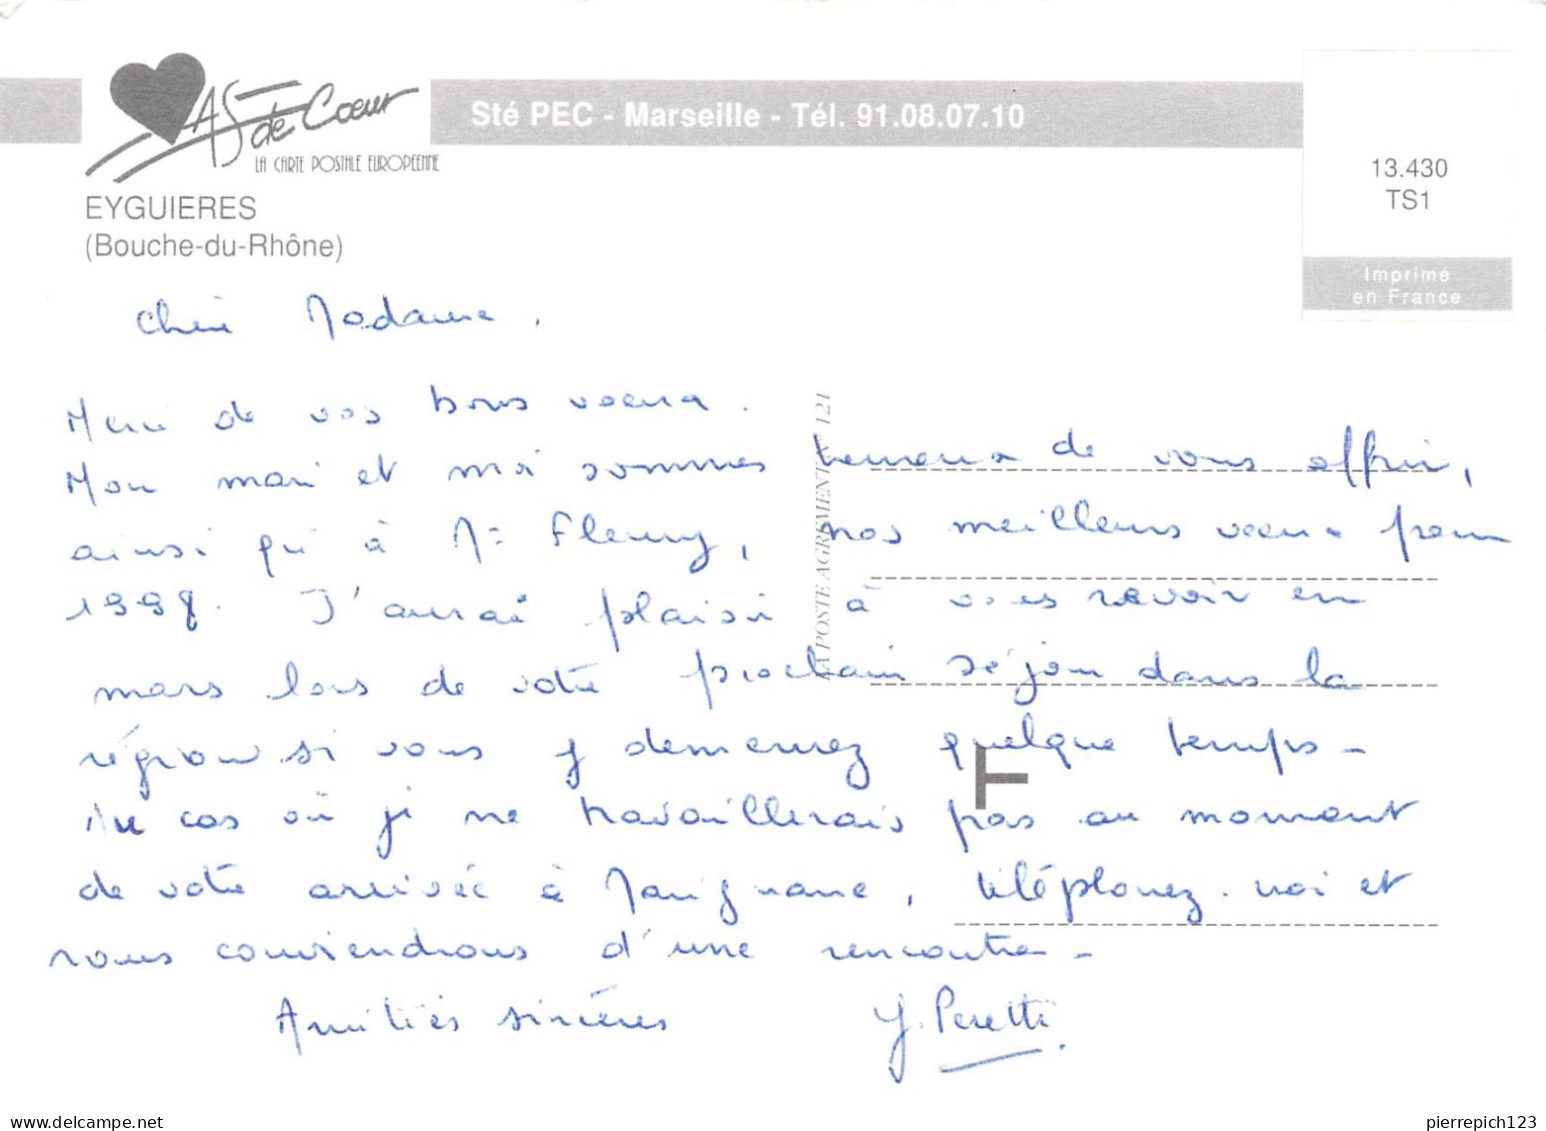 AS de Coeur
LA CARTE POSTALE EUROPEENNE
Sté PEC - Marseille - Tél. 91.08.07.10
13.430
TS1
Imprimé
en France
EYGUIERES
(Bouche-du-Rhône)
LA POSTE AGREMENT N° 121
Chère Madame,
Merci de vos bons voeux.
Mon mari et moi sommes heureux de vous offrir,
ainsi qu'à Mr Fleury, nos meilleurs voeux pour
1998. J'aurai plaisir à vous revoir en
mars lors de votre prochain séjour dans la
région si vous y demeurez quelque temps -
Au cas où je ne travaillerais pas au moment
de votre arrivée à Marignane, téléphonez-moi et
nous conviendrons d'une rencontre -
Amitiés sincères
Y. Peretti
T
www.delcampe.net
pierrepich123